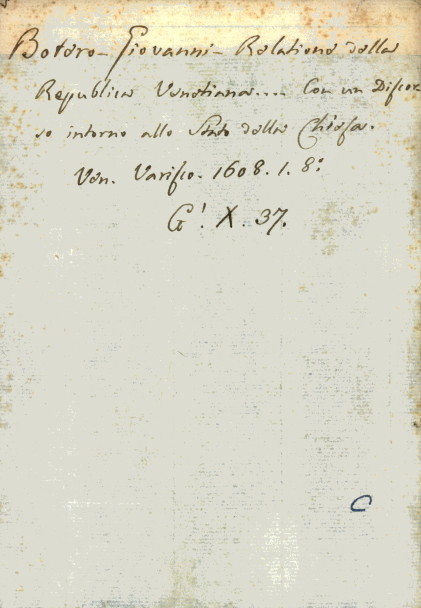 Botero - Giovanni - Relatione della
Republica Venetiana.... Con un Discor-
so intorno allo Stato della Chiesa.
Ven. Varisco. 1608. 1. 8°
G'. X. 37.
C